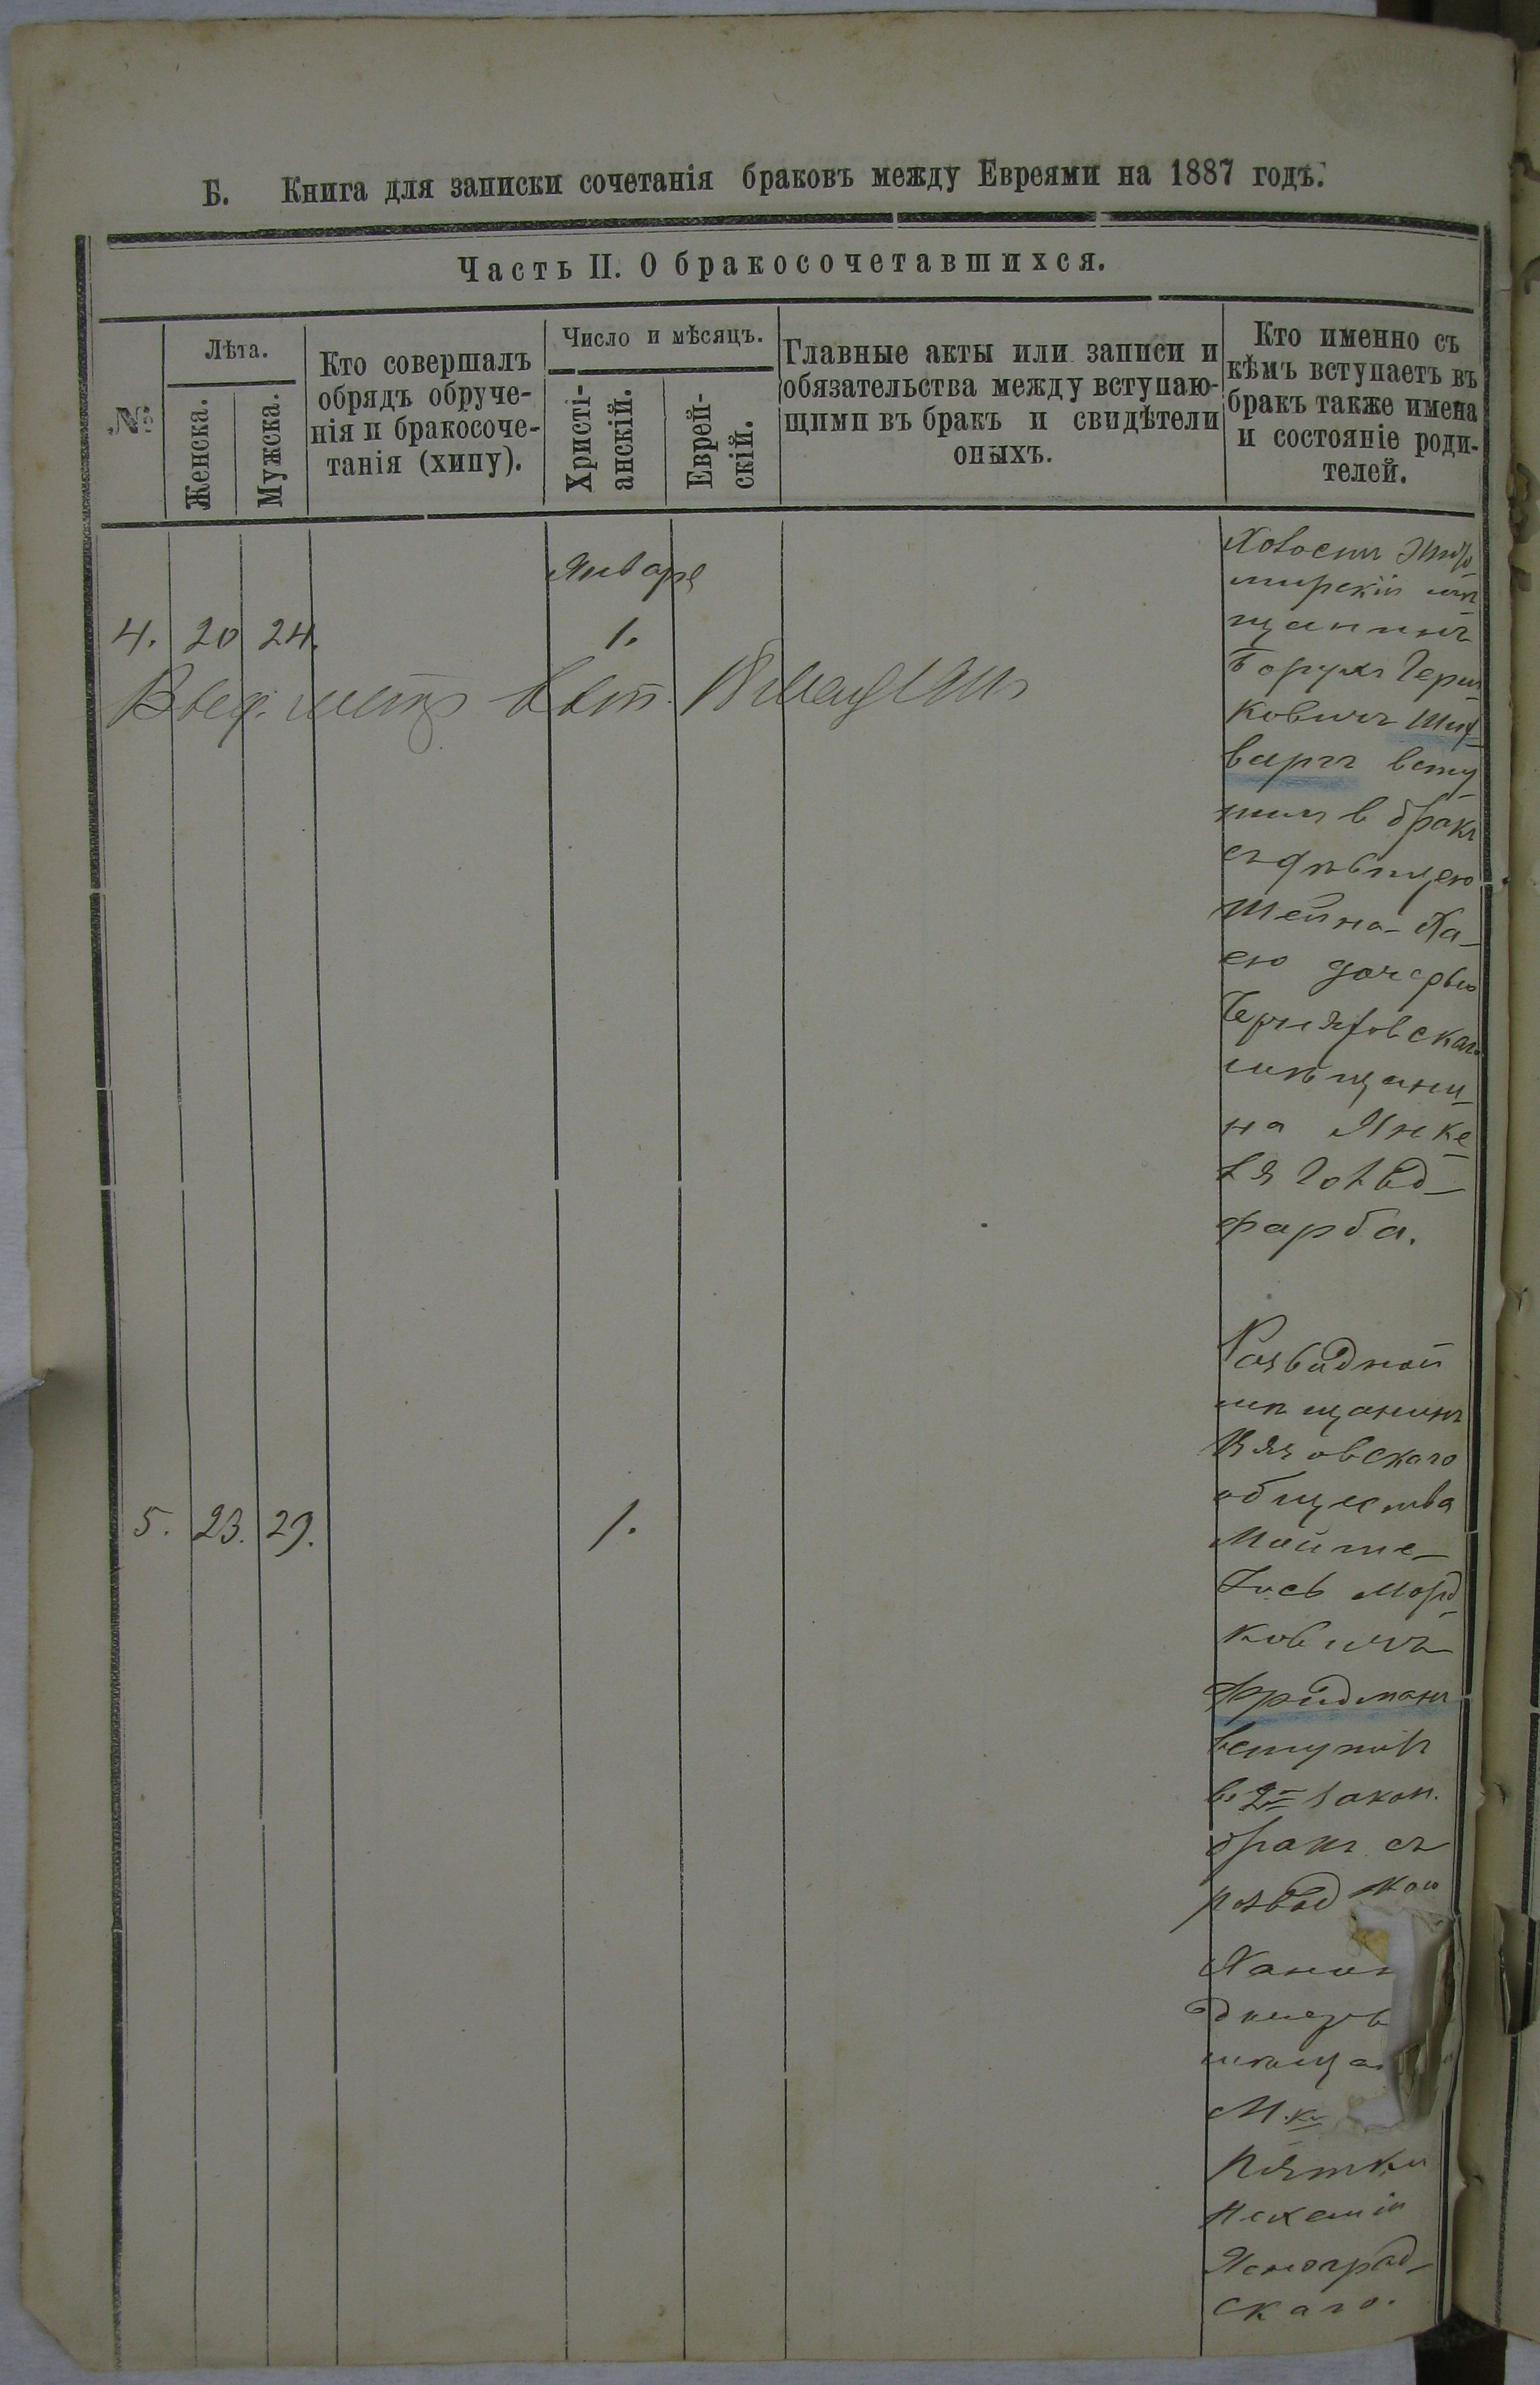 Б. Книга для записки сочетанія браковъ между Евреями на 1887 годъ.
Часть II. О бракосочетавшихся.
№
Лѣта.
Женска.
Мужска.
Кто совершалъ
обрядъ обруче-
нія и бракосоче-
танія (хипу).
Число и мѣсяцъ.
Христі-
анскій.
Еврей-
скій.
Главные акты или записи и
обязательства между вступаю-
щими въ бракъ и свидѣтели
оныхъ.
Кто именно съ
кѣмъ вступаетъ въ
бракъ также имена
и состояніе роди-
телей.
Января
4. 20 24. 1.
Холостъ Жито
мирскій мѣ
щанинъ
Борухъ Герш
ковичъ
варгъ всту
пилъ в бракъ
съ дѣвицею
Шейна-Ха-
ею дочерью
Черняховскаго
мѣщани-
на Янке
ля Гольд-
фарба.
5. 23. 29. 1.
Разводной
мѣщанинъ
общества
Морд
ковичъ
Фридманъ
вступилъ
во 2й закон.
бракъ съ
разводкою
мѣща
М.ка
Пятки
Ясноград-
скаго.